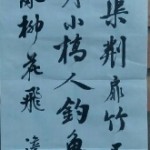 渠荆扉竹
小橋人釣魚
柳花飛